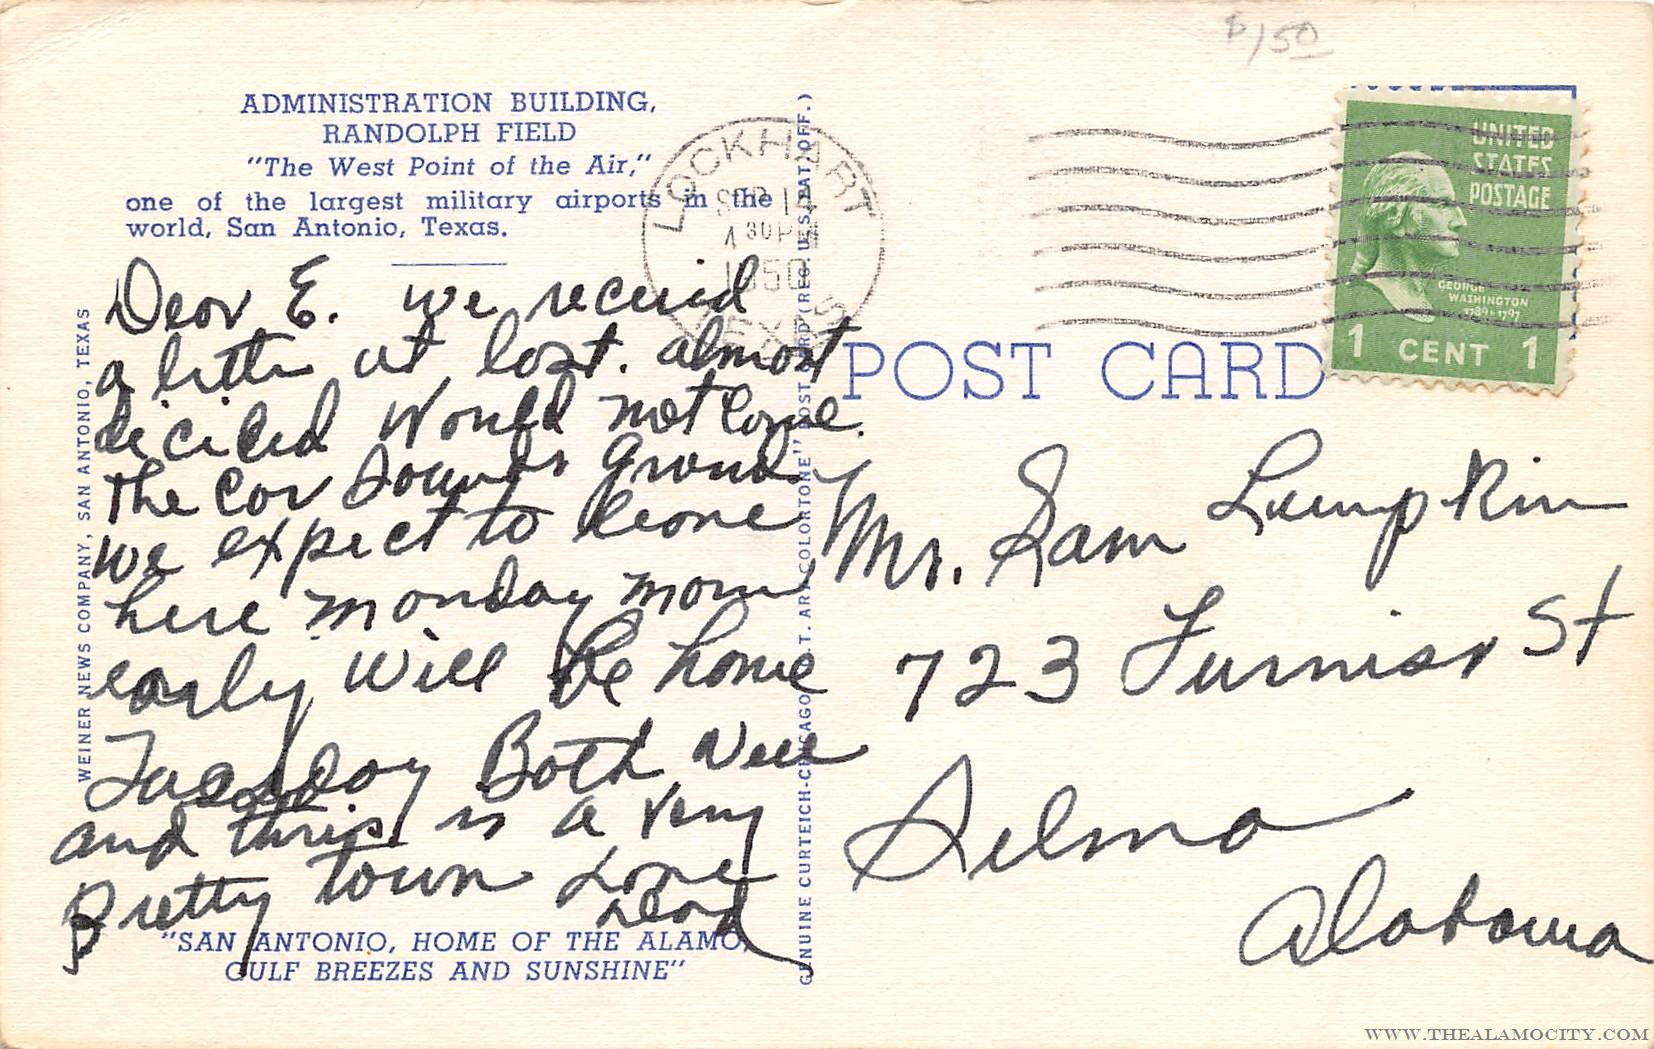 $1.50
ADMINISTRATION BUILDING,
RANDOLPH FIELD
"The West Point of the Air,"
one of the largest military airports in the
world, San Antonio, Texas.
LOCKHART
SEP
4 30 PM
1950
TEXAS
UNITED
STATES
POSTAGE
GEORGE
WASHINGTON
1789-1797
1 CENT 1
POST CARD
Dear E. we received
a letter at last. almost
decided would not come.
The car sounds grand
we expect to leave
here monday morn
early will be home
Tuesday Both well
and this is a very
pretty town Love
Mr. Sam Lumpkin
723 Furniss St
Selma
Alabama
"SAN ANTONIO, HOME OF THE ALAMO,
GULF BREEZES AND SUNSHINE"
WEINER NEWS COMPANY, SAN ANTONIO, TEXAS
GENUINE CURTEICH-CHICAGO "C.T. ART-COLORTONE" POST CARD (REG. U.S. PAT. OFF.)
WWW.THEALAMOCITY.COM